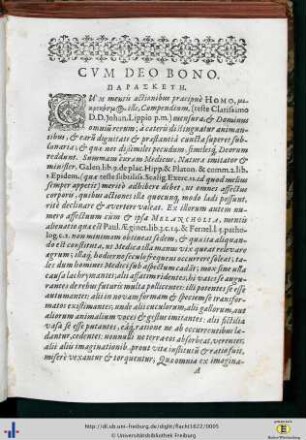 CVM DEO BONO.
ΠΑΡΑΣΚΕΥΗ.
CUM mentis actionibus præcipuè HOMO,
ille, Compendium, (teste Clarissimo
D.D. Johan. Lippio p.m.) mensura, & Dominus
omnium rerum; à cæteris distinguatur animan-
tibus, & rarâ dignitate & præstantiâ cuncta superet sub-
lunaria; & quæ nos dissimiles pecudum, similesq; Deorum
reddunt. Summam curam Medicus, Naturæ imitator &
minister, Galen. lib. 9. de plac. Hipp. & Platon. & comm. 2. lib.
1. Epidem. (quæ teste subtiliss. Scalig. Exerc. ad quod melius
semper appetit) meritò adhibere debet, ut omnes affectus
corporis, quibus actiones illa quocunq; modo lædi possunt,
ritè declinare & avertere valeat. Ex illorum autem nu-
mero affectuum cùm & ipsa MELANCHOLIA, mentis
alienatio quæ est Paul. Æginet. lib. 3. c. 14. & Fernel. l. 5. patholog.
c. 2. non minimam obtineat sedem, & quæ ita aliquan-
do est constituta, ut Medica illa manus vix queat relevare
ægrum; illiq; hodierno seculo frequens occurrere soleat; ta-
les dum hominis Medici sub aspectum cadit; mox sine ulla
causa lachrymantes; alii assatim ridentes; hi vates se arguen-
tes de rebus futuris multa pollicentes: illi potentes se esse
autumantes: alii in novam formam & speciem se transfor-
matos existimantes; unde alii cuculorum, alii gallorum, aut
aliorum animalium voces & gestus imitantes: alii fictilia
vasa se esse putantes, eâq; ratione ne ab occurrentibus læ-
dantur, cedentes: nonnulli ne terræ eos absorbeat, verentes:
alii aliis imaginationib. prout vitæ institutio & ratio fuit,
miserè vexantur & torquentur; Quæ omnia ex imagina-
A
http://dl.ub.uni-freiburg.de/diglit/fischl1622/0005
© Universitätsbibliothek Freiburg